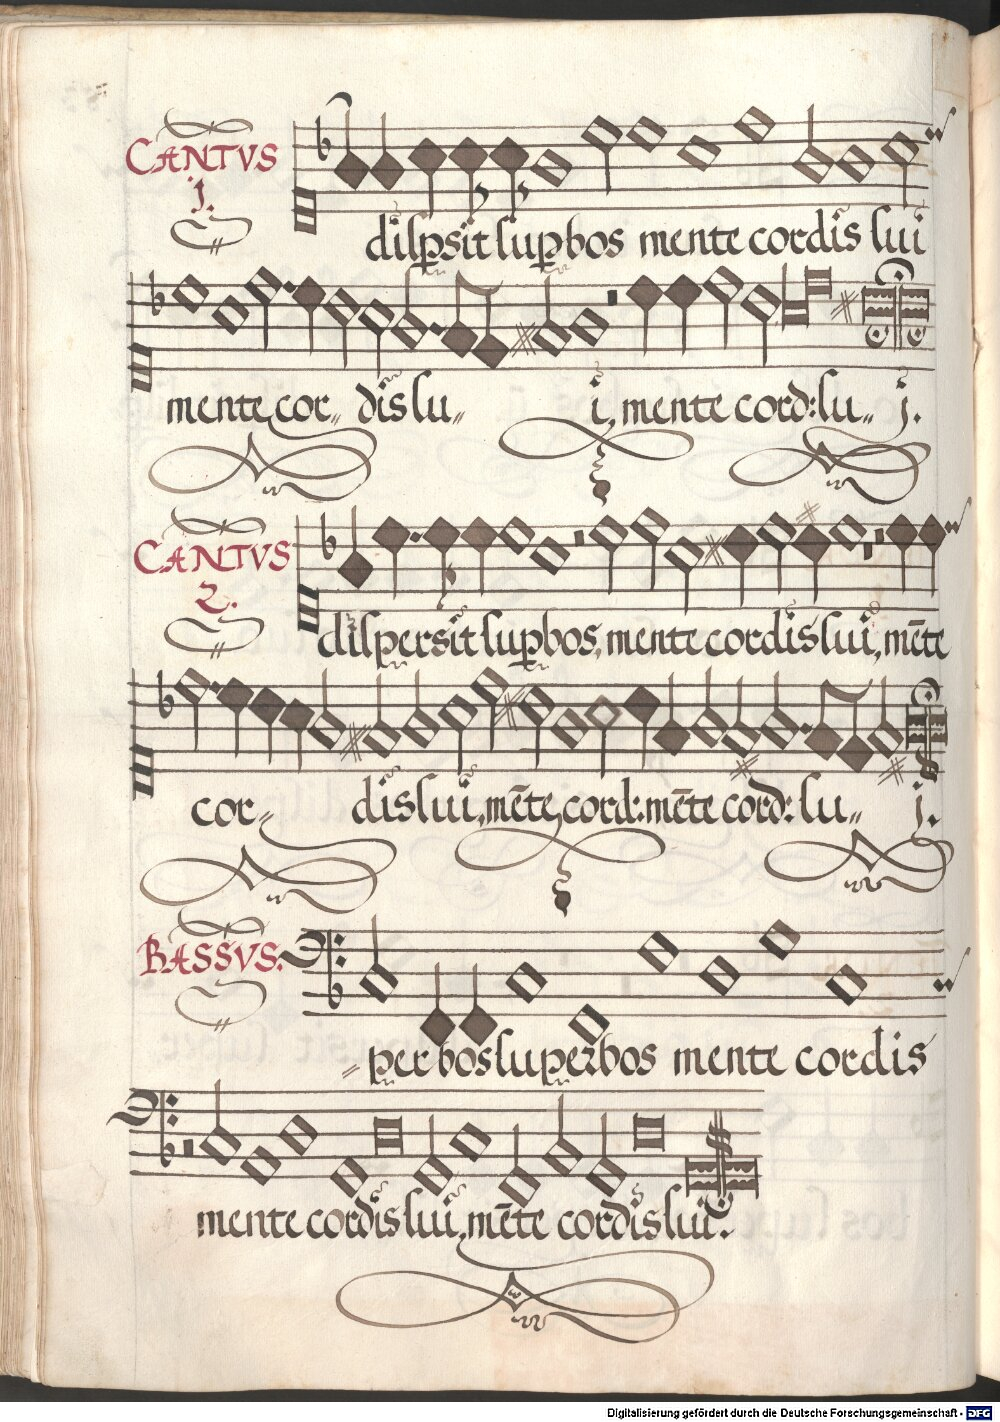 CANTVS
1.
dispsit supbos mente cordis sui
mente cor„ dis su„ i, mente cord: su„ j.
CANTVS
2.
dispersit supbos, mente cordis sui, mēte
cor„ dis sui, mēte cord: mēte cord: su„ j.
BASSVS.
per bos superbos mente cordis
mente cordis sui, mēte cordis sui.
Digitalisierung gefördert durch die Deutsche Forschungsgemeinschaft - DFG